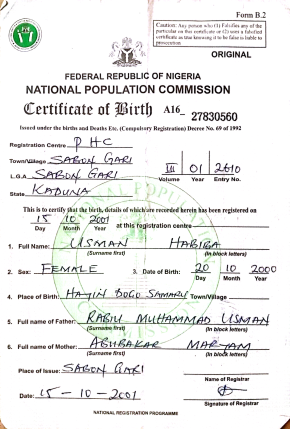 Form B.2
Caution: Any person who (1) Falsifies any of the
particular on this certificate or (2) uses a falsified
certificate as true knowing it to be false is liable to
prosecution
ORIGINAL
FEDERAL REPUBLIC OF NIGERIA
NATIONAL POPULATION COMMISSION
Certificate of Birth A16 27830560
Issued under the births and Deaths Etc. (Compulsory Registration) Decree No. 69 of 1992
Registration Centre PHC
Town/Village SABON GARI
L.G.A SABON GARI III 01 2610
Volume Year Entry No.
State KADUNA
This is to certify that the birth, details of which are recorded herein has been registered on
15 10 2001 at this registration centre
Day Month Year
1. Full Name: USMAN HABIBA
(Surname first) (In block letters)
2. Sex: FEMALE 3. Date of Birth: 20 10 2000
Day Month Year
4. Place of Birth: HAYIN DOGO SAMARU Town/Village
5. Full name of Father: RABIU MUHAMMAD USMAN
(Surname first) (In block letters)
6. Full name of Mother: ABUBAKAR MARYAM
(Surname first) (In block letters)
Place of Issue: SABON GARI
Name of Registrar
Date: 15-10-2001
Signature of Registrar
NATIONAL REGISTRATION PROGRAMME